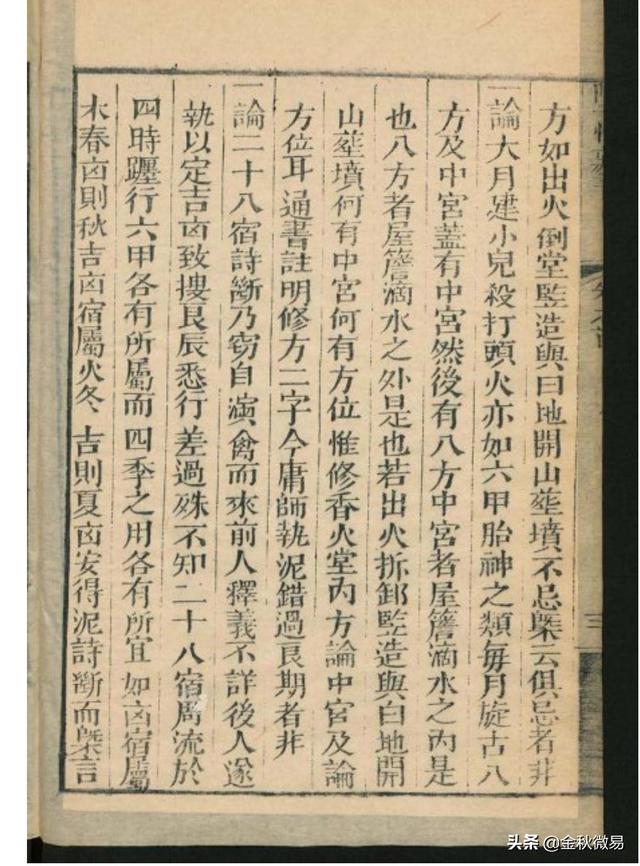 方如出火倒堂監造與曰地開山塟墳不忌槩云俱忌者非
一論大月建小兒殺打頭火亦如六甲胎神之類每月旋古八
方及中宮蓋有中宮然後有八方中宮者屋簷滴水之內是
也八方者屋簷滴水之外是也若出火拆卸監造與白地開
山塟墳何有中宮何有方位惟修香火堂內方論中宮及論
方位耳通書註明修方二字今庸師執泥錯過良期者非
一論二十八宿詩斷乃窃自演禽而來前人釋義不詳後人遂
執以定吉凶致搜良辰悉行差過殊不知二十八宿周流於
四時躔行六甲各有所屬而四季之用各有所宜如凶宿屬
木春凶則秋吉凶宿屬火冬吉則夏凶安得泥詩斷而槩言
三
头条 @金秋微易